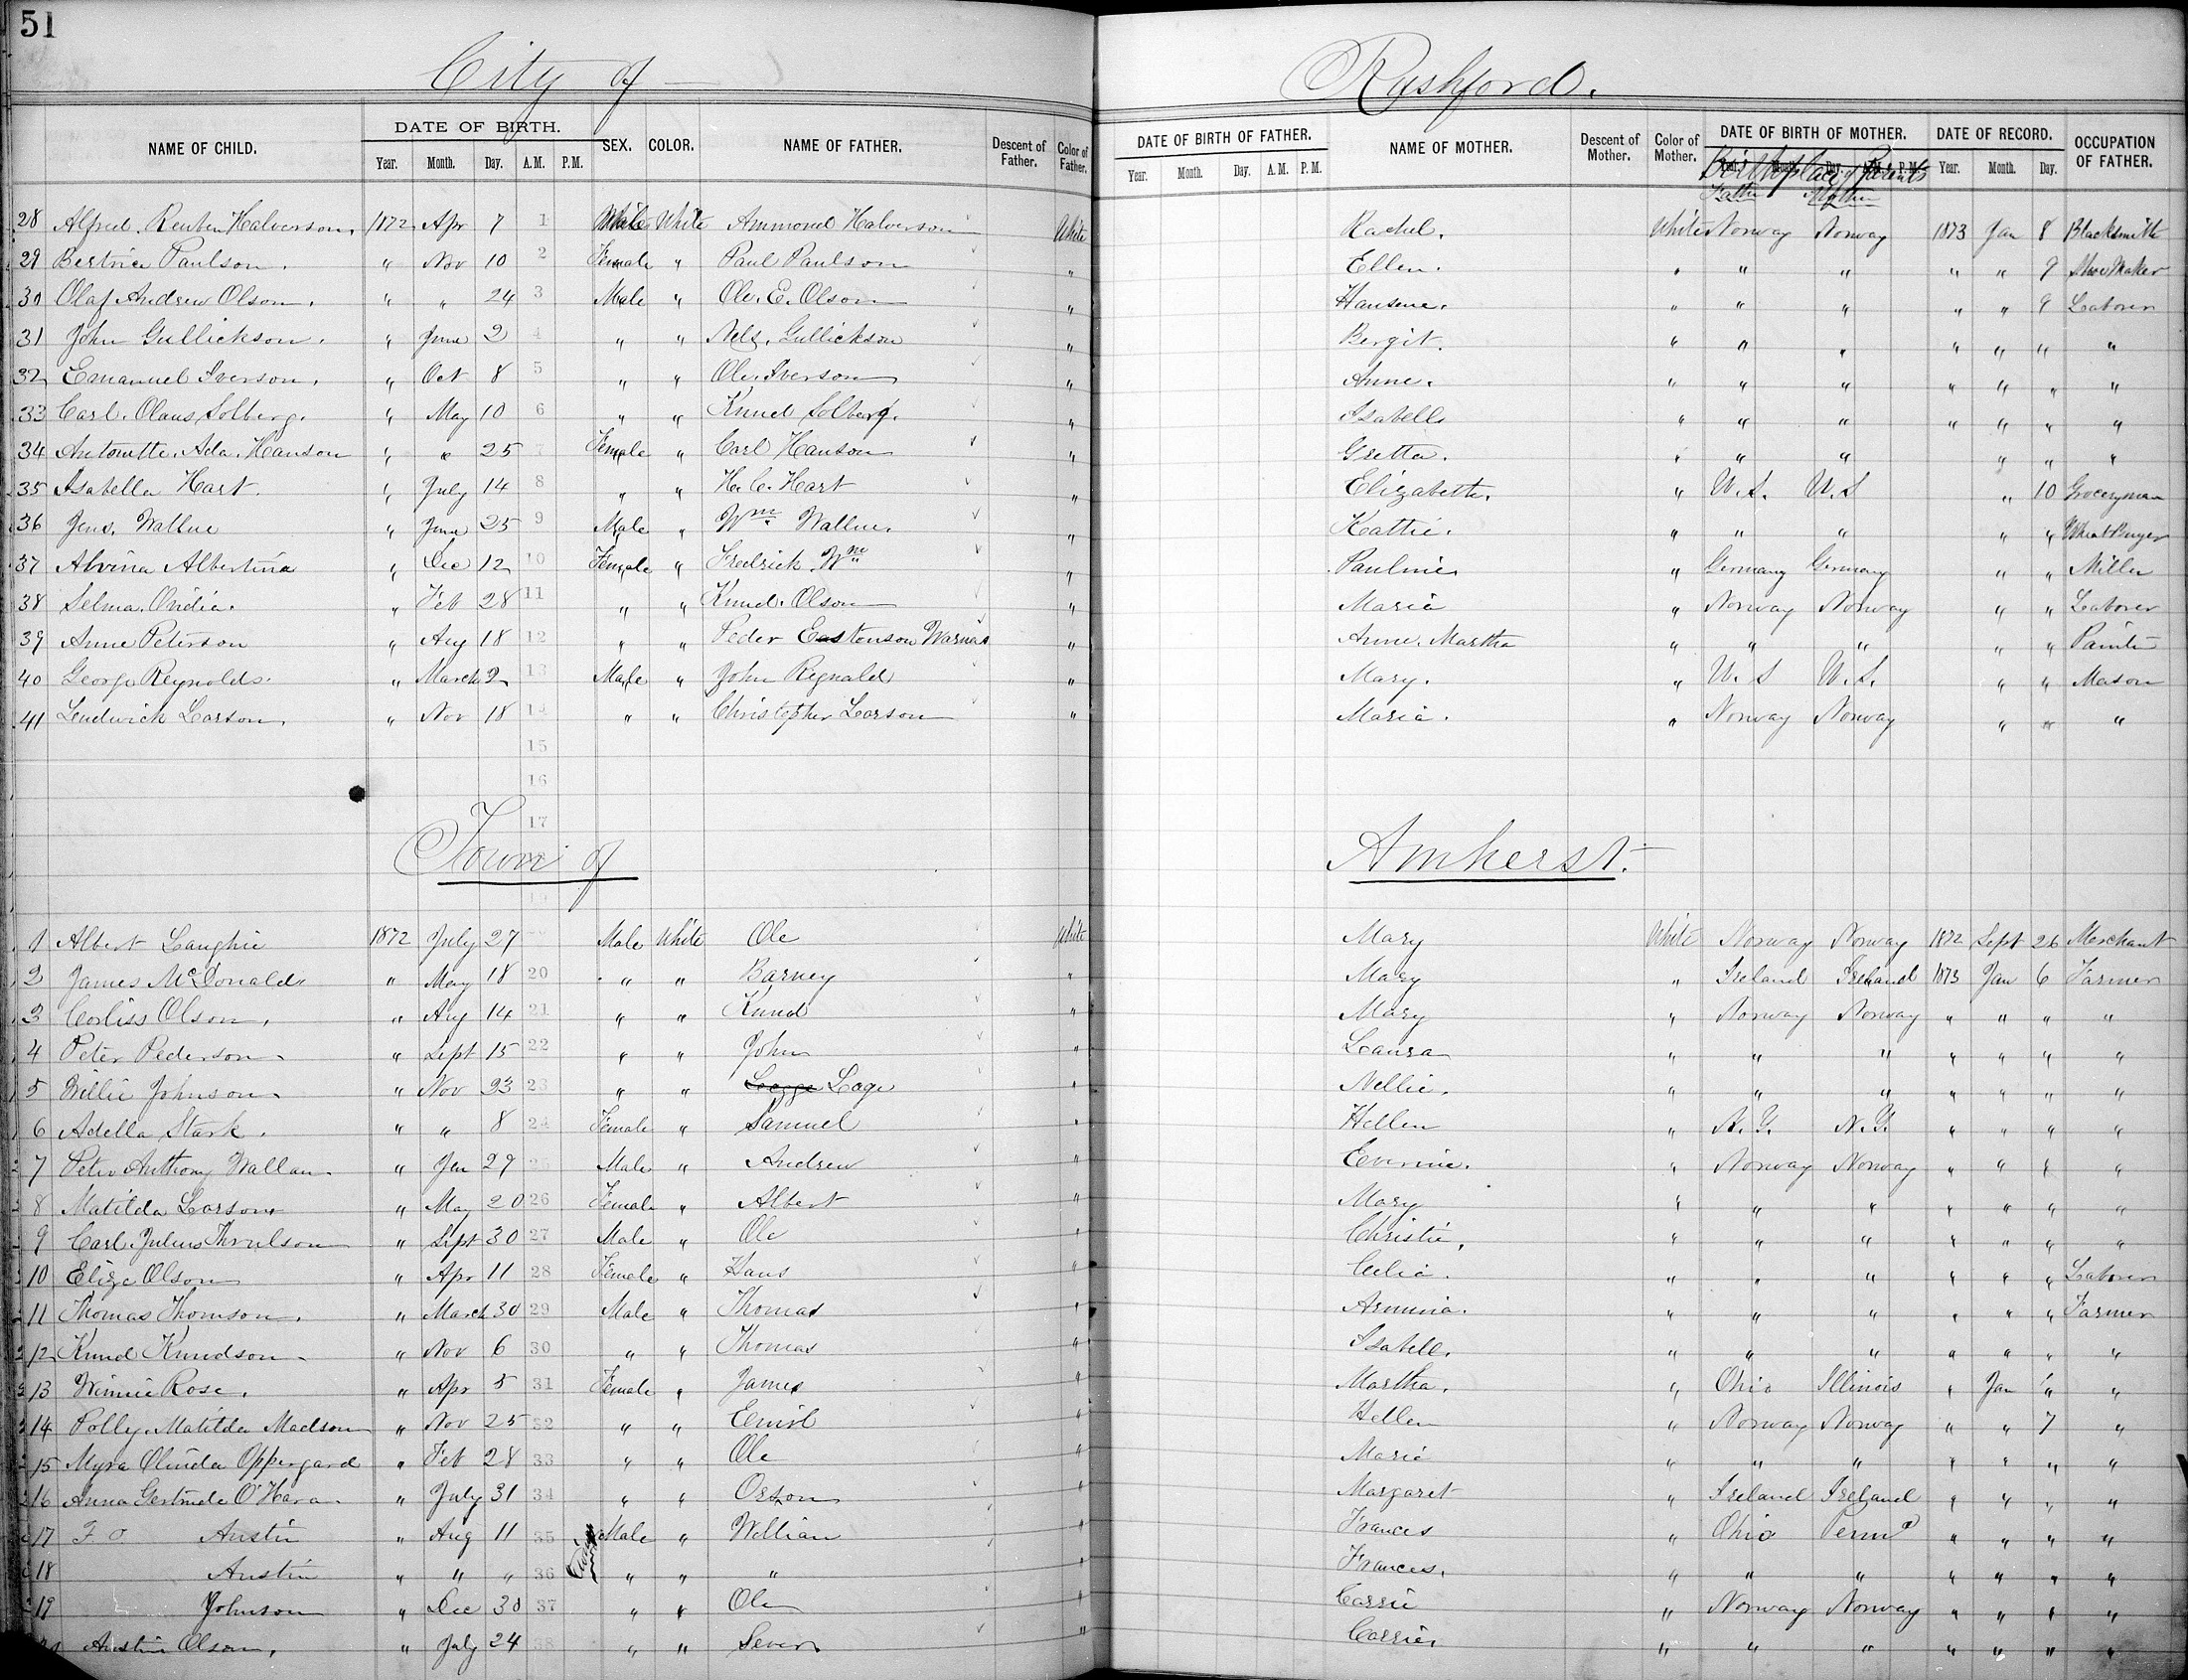 51
City of Rushford.
NAME OF CHILD. DATE OF BIRTH. SEX. COLOR. NAME OF FATHER. Descent of Father. Color of Father. DATE OF BIRTH OF FATHER. NAME OF MOTHER. Descent of Mother. Color of Mother. DATE OF BIRTH OF MOTHER. DATE OF RECORD. OCCUPATION OF FATHER.
Year. Month. Day. A.M. P.M. Year. Month. Day. A.M. P.M. Year. Month. Day. A.M. P.M. Year. Month. Day.
Birthplace of Parents
Father Mother
28 Alfred Reuben Halverson. 1872 Apr 7 1 Male White Ammond Halverson White Rachel. White Norway Norway 1873 Jan 8 Blacksmith
29 Bertnice Paulson. " Nov 10 2 Female " Paul Paulson " Ellen. " " " " " 9 Shoe Maker
30 Olaf Andrew Olson. " " 24 3 Male " Ole. E. Olson " Hansene. " " " " " 9 Laborer
31 John Gullickson. " June 2 4 " " Nels. Gullickson " Bergit. " " " " " " "
32 Emanuel Iverson. " Oct 8 5 " " Ole. Iverson " Anne. " " " " " " "
33 Carl. Olaus Solberg. " May 10 6 " " Knud Solberg. " Isabell " " " " " " "
34 Antonette. Ada. Hanson " " 25 7 Female " Carl Hanson " Gretta. " " " " " "
35 Isabella Hart. " July 14 8 " " H. C. Hart " Elizabeth. " U.S. U.S " 10 Groceryman
36 Jens. Wallue " June 25 9 Male " Wm. Wallue. " Kattie. " " " " " Wheat Buyer
37 Alvina Albertina " Dec 12 10 Female " Fredrick. Wm " Pauline " Germany Germany " " Miller
38 Selma. Ovidia. " Feb 28 11 " " Knud. Olson " Maria " Norway Norway " " Laborer
39 Anne Peterson " Aug 18 12 " " Peder Eastenson Warnas " Anne. Martha " " " " " Painter
40 George Reynolds. " March 2 13 Male " John Regnald " Mary. " U.S U.S. " " Mason
41 Ludwick Larson. " Nov 18 14 " " Christopher Larson " Maria. " Norway Norway " " "
15
16
17
Town of Amherst.
1 Albert Langhie 1872 July 27 Male White Ole White Mary White Norway Norway 1872 Sept 26 Merchant
2 James McDonald " May 18 20 " " Barney " Mary " Ireland Ireland 1873 Jan 6 Farmer
3 Corliss Olson. " Aug 14 21 " " Knud " Mary " Norway Norway " " " "
4 Peter Pederson. " Sept 15 22 " " John " Laura " " " " " " "
5 Willie Johnson. " Nov 23 23 " " Lage " Nellie. " " " " " " "
6 Adella Stark. " " 8 24 Female " Samuel " Hellen " N.Y. N.Y. " " " "
7 Peter Anthony Wallan. " Jan 27 25 Male " Andrew " Everine. " Norway Norway " " " "
8 Matilda Larson " May 20 26 Female " Albert " Mary " " " " " " "
9 Carl. Julius Thrulson " Sept 30 27 Male " Ole " Christie. " " " " " " "
10 Eliza Olson " Apr 11 28 Female " Hans " Celia. " " " " " " Laborer
11 Thomas Thomson. " March 30 29 Male " Thomas " Armina. " " " " " " Farmer
12 Knud Knudson. " Nov 6 30 " " Thomas " Isabell. " " " " " " "
13 Winnie Rose. " Apr 5 31 Female " James " Martha. " Ohio Illinois " Jan " "
14 Polly. Matilda Madson " Nov 25 32 " " Ernist " Hellen " Norway Norway " " 7 "
15 Myra Olinda Oppergard " Feb 28 33 " " Ole " Marie " " " " " " "
16 Anna Gertrude O'Hara. " July 31 34 " " Orson " Margaret " Ireland Ireland " " " "
17 F. O. Austin " Aug 11 35 Twins Male " William " Frances " Ohio Penna " " " "
18 Austin " " " 36 " " " " Frances. " " " " " " "
19 Johnson " Dec 30 37 " " Ole " Carrie " Norway Norway " " " "
Austin Olson. " July 24 38 " " Sever. " Carrie. " " " " " " "